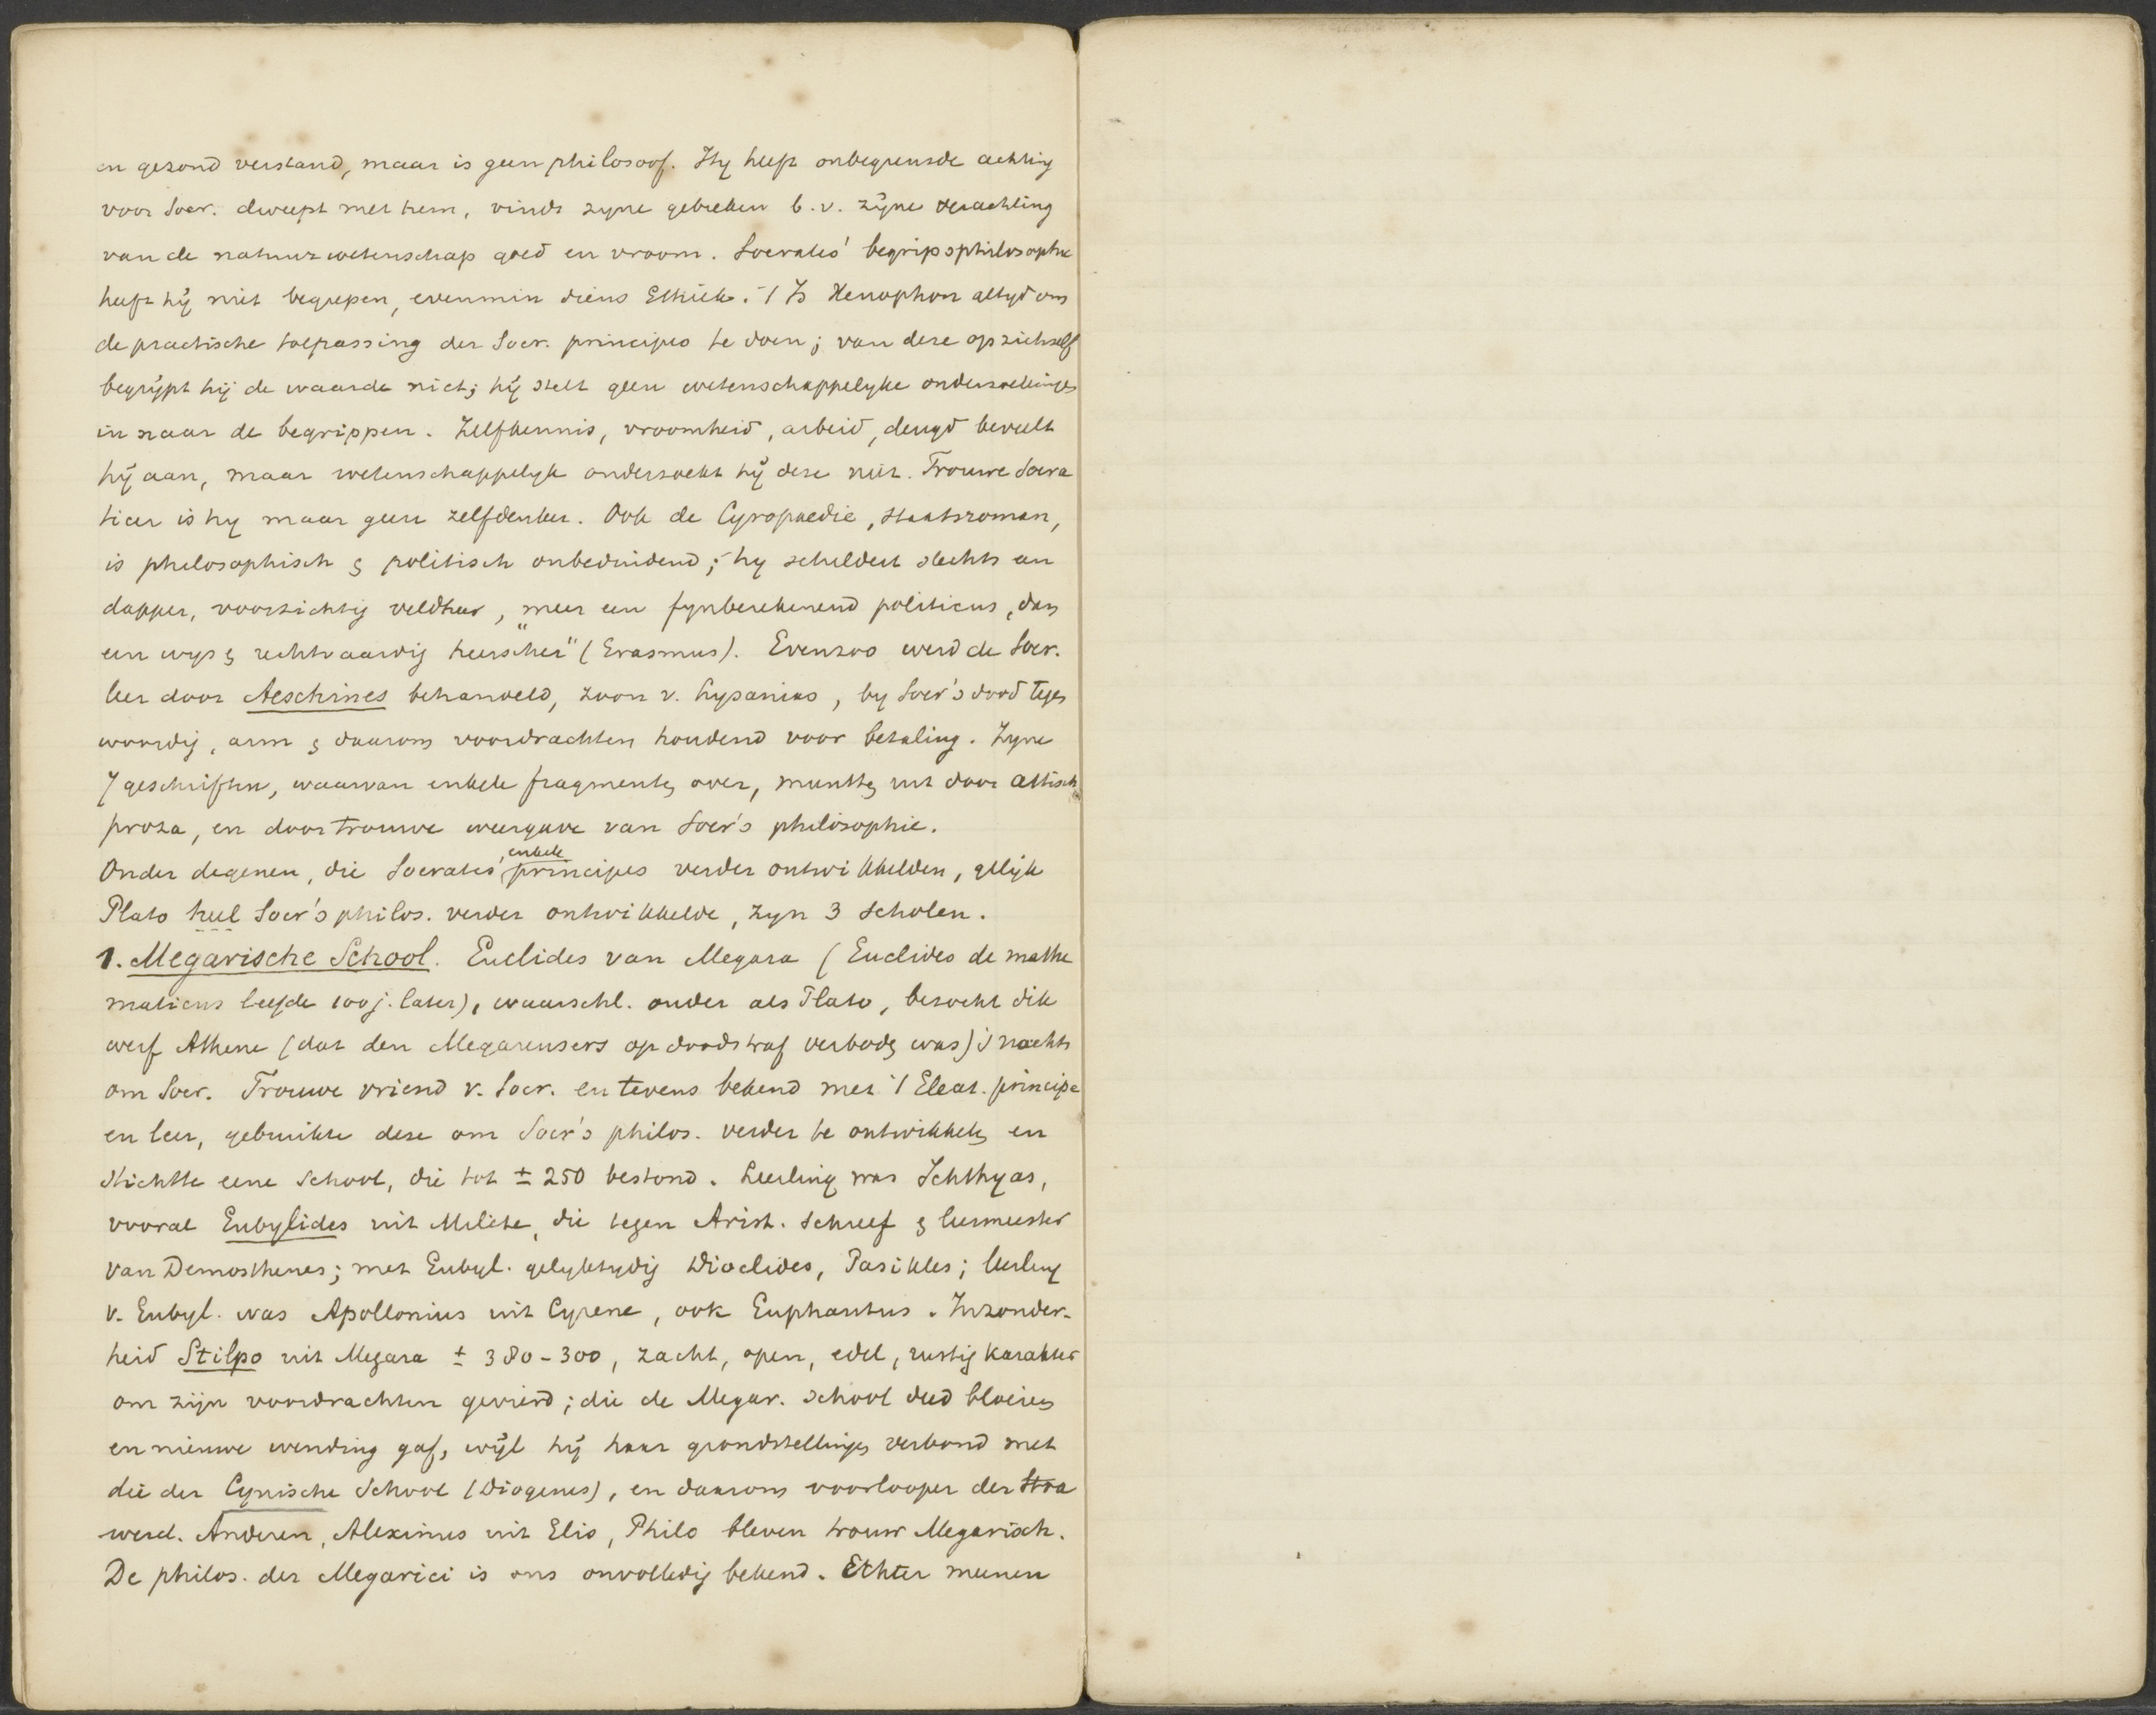 en gezond verstand, maar is geen philosoof. Hy heeft onbegrensde achting
voor Socr. dweept met hem, vindt zyne gebreken b.v. zijne verachting
van de natuurwetenschap goed en vroom. Socrates' begripsphilosophie
heeft hij niet begrepen, evenmin diens Ethiek. 't Is Xenophon altyd om
de practische toepassing der Socr. principes te doen; van deze op zichzelf
begrijpt hij de waarde niet; hij stelt geen wetenschappelyke onderzoekingen
in naar de begrippen. Zelfkennis, vroomheid, arbeid, deugd beveelt
hij aan, maar wetenschappelyk onderzoekt hij deze niet. Trouwe Socra
ticer is hy maar geen zelfdenker. Ook de Cyropaedie, staatsroman,
is philosophisch & politisch onbeduidend; hy schildert slechts een
dapper, voorzichtig veldheer, „meer een fynberekenend politicus, dan
een wys & rechtvaardig heerscher" (Erasmus). Evenzoo werd de Socr.
leer door Aeschines behandeld, zoon v. Lysanias, by Socr's dood tegen
woordig, arm & daarom voordrachten houdend voor betaling. Zyne
7 geschriften, waarvan enkele fragmenten over, muntten uit door attisch
proza, en door trouwe weergave van Socr's philosophie.
Onder degenen, die Socrates' enkele principes verder ontwikkelden, gelijk
Plato heel Socr's philos. verder ontwikkelde, zyn 3 scholen.
1. Megarische School. Euclides van Megara (Euclides de mathe
maticus leefde 100 j. later), waarschl. ouder als Plato, bezocht dik
werf Athene (dat den Megarensers op doodstraf verboden was) 's nachts
om Socr. Trouwe vriend v. Socr. en tevens bekend met 't Eleat. principe
en leer, gebruikte deze om Socr's philos. verder te ontwikkelen en
stichtte eene school, die tot ± 250 bestond. Leerling was Ichthyas,
vooral Eubylides uit Milete, die tegen Arist. schreef & leermeester
van Demosthenes; met Eubyl. gelyktydig Dioclides, Pasikles; leerling
v. Eubyl. was Apollonius uit Cyrene, ook Euphantus. Inzonder-
heid Stilpo uit Megara ± 380-300, zacht, open, edel, rustig karakter
om zijn voordrachten gevierd; die de Megar. school deed bloeien
en nieuwe wending gaf, wijl hij haar grondstellingen verbond met
die der Cynische School (Diogenes), en daarom voorlooper der Stoa
werd. Anderen, Alexinus uit Elis, Philo bleven trouw Megarisch.
De philos. der Megarici is ons onvolledig bekend. Echter meenen